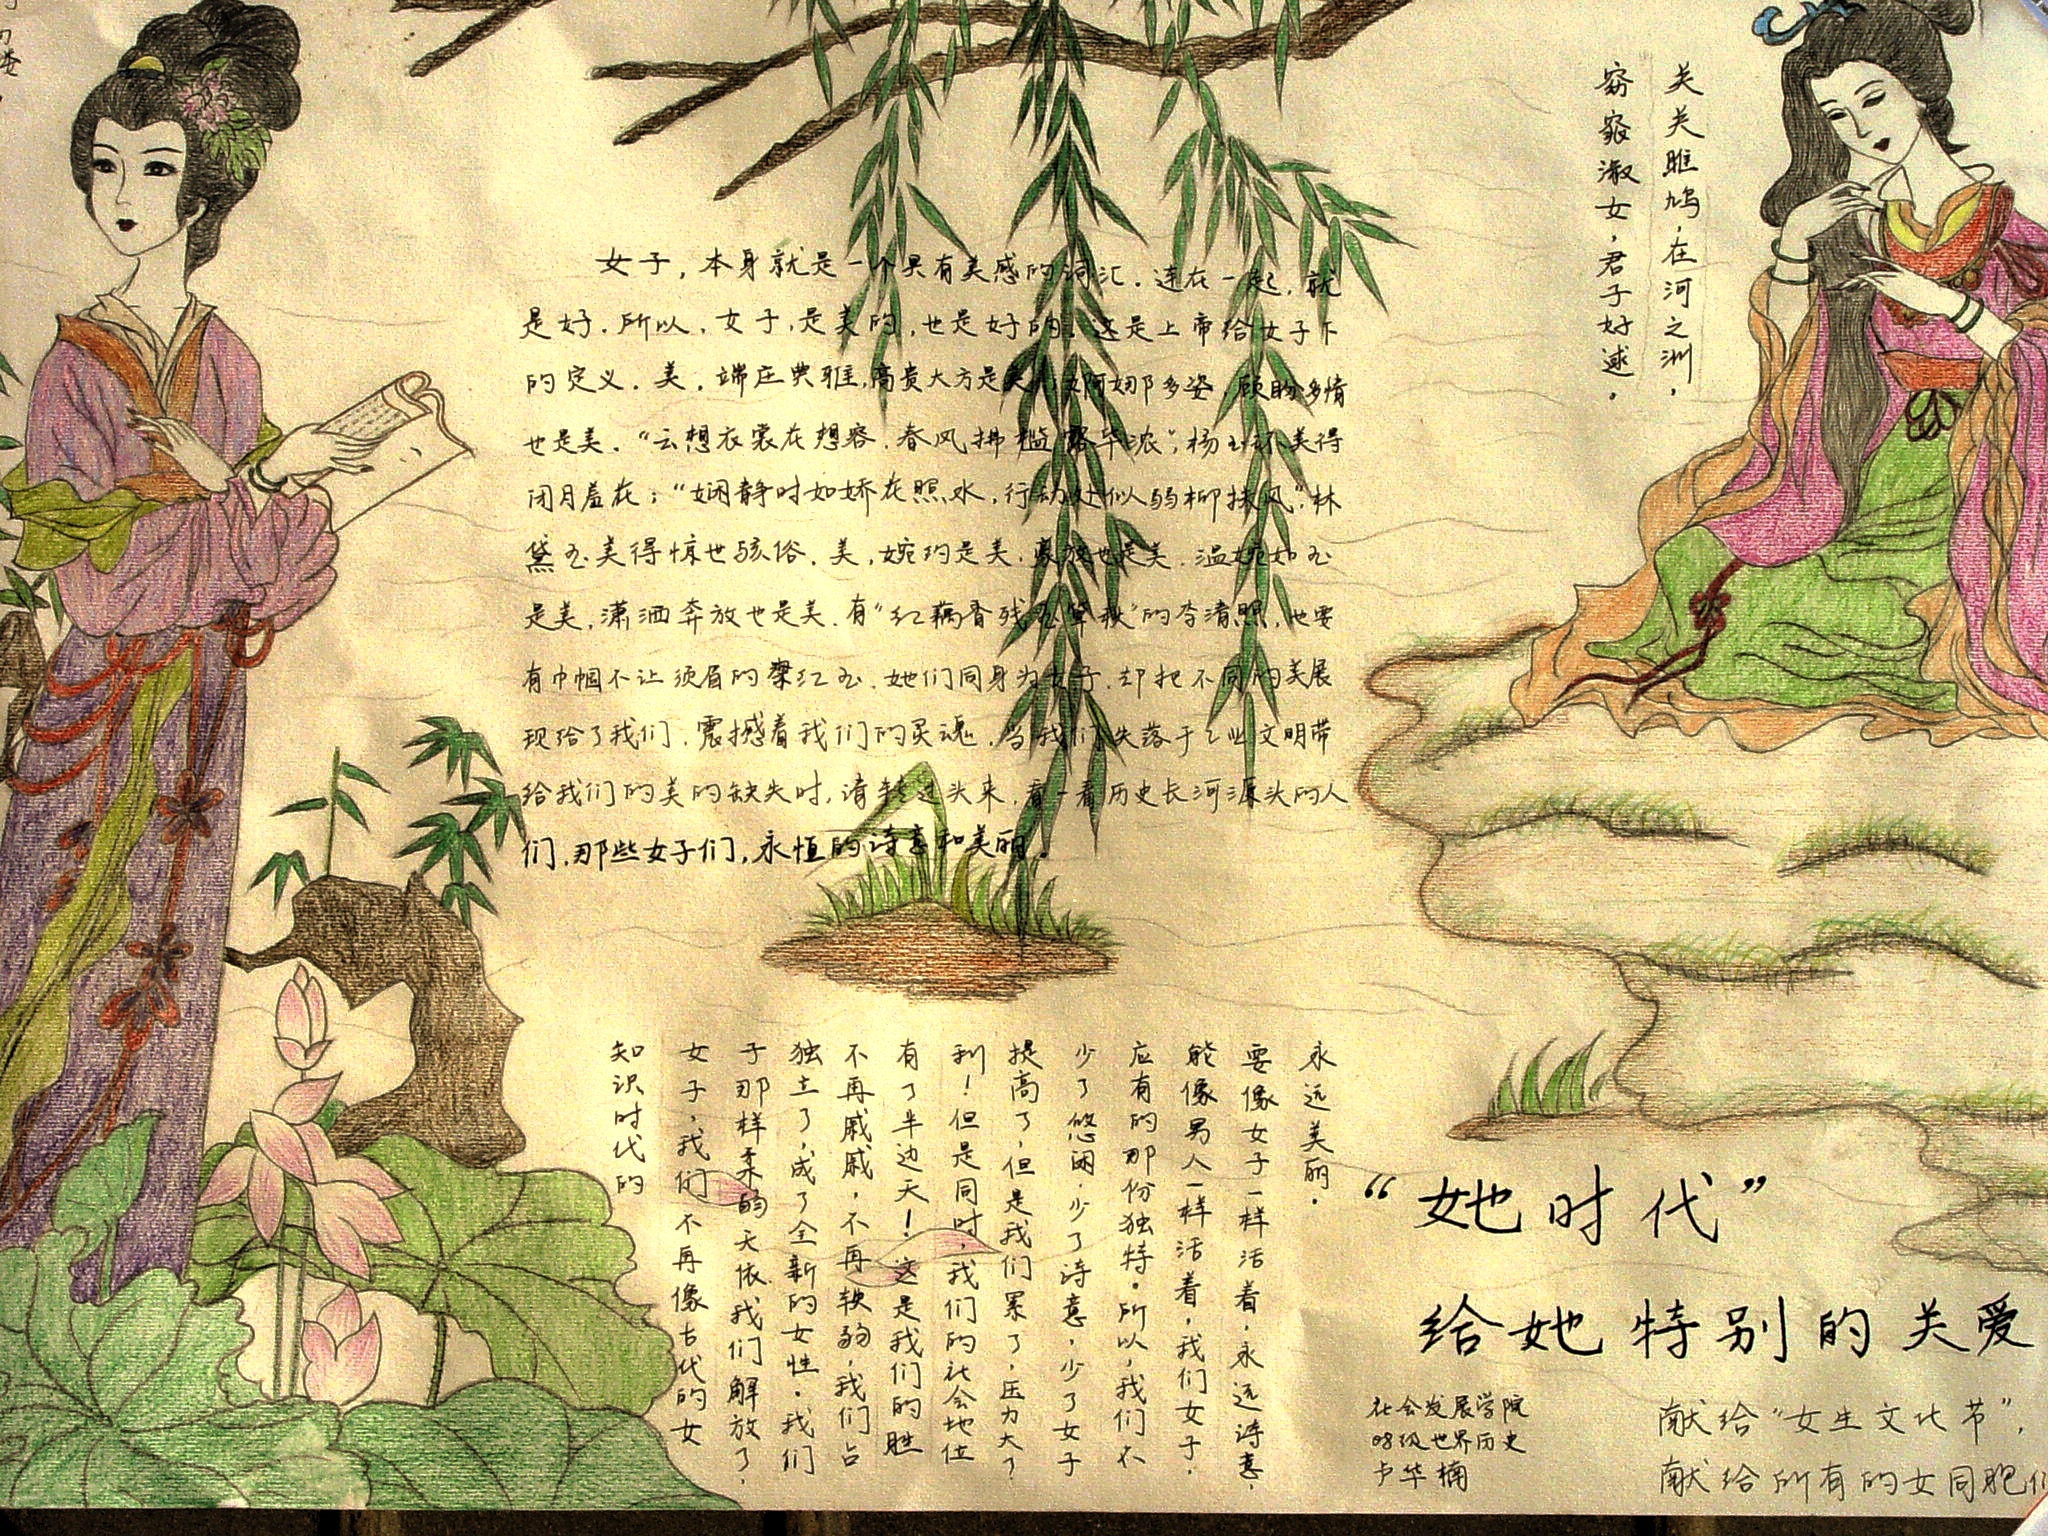 关关雎鸠，在河之洲，
窈窕淑女，君子好逑。
女子，本身就是一个具有美感的词汇．连在一起，就
是好．所以，女子，是美的，也是好的．这是上帝给女子下
的定义．美，端庄典雅，高贵大方是美，婀娜多姿，顾盼多情
也是美．“云想衣裳花想容．春风拂槛露华浓”，杨玉环美得
闭月羞花；“娴静时如娇花照水，行动处似弱柳扶风”，林
黛玉美得惊世骇俗．美，婉约是美，豪放也是美．温婉如玉
是美，潇洒奔放也是美．有“红藕香残玉簟秋”的李清照，也要
有巾帼不让须眉的梁红玉．她们同身为女子，却把不同的美展
现给了我们，震撼着我们的灵魂．当我们失落于工业文明带
给我们的美的缺失时，请转过头来，看一看历史长河源头的人
们，那些女子们，永恒的诗意和美丽．
知识时代的
女子，我们不再像古代的女
子那样柔的天依我们解放了，
独立了，成了全新的女性．我们
不再戚戚，不再软弱，我们占
有了半边天！这是我们的胜
利！但是同时，我们的社会地位
提高了，但是我们累了，压力大了
少了悠闲，少了诗意，少了女子
应有的那份独特。所以，我们不
能像男人一样活着，我们女子，
要像女子一样活着，永远诗意，
永远美丽．
“她时代”
给她特别的关爱
社会发展学院
08级世界历史
卢华楠
献给“女生文化节”，
献给所有的女同胞们